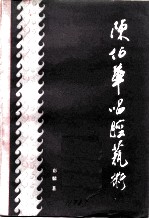 陳伯華唱腔藝術